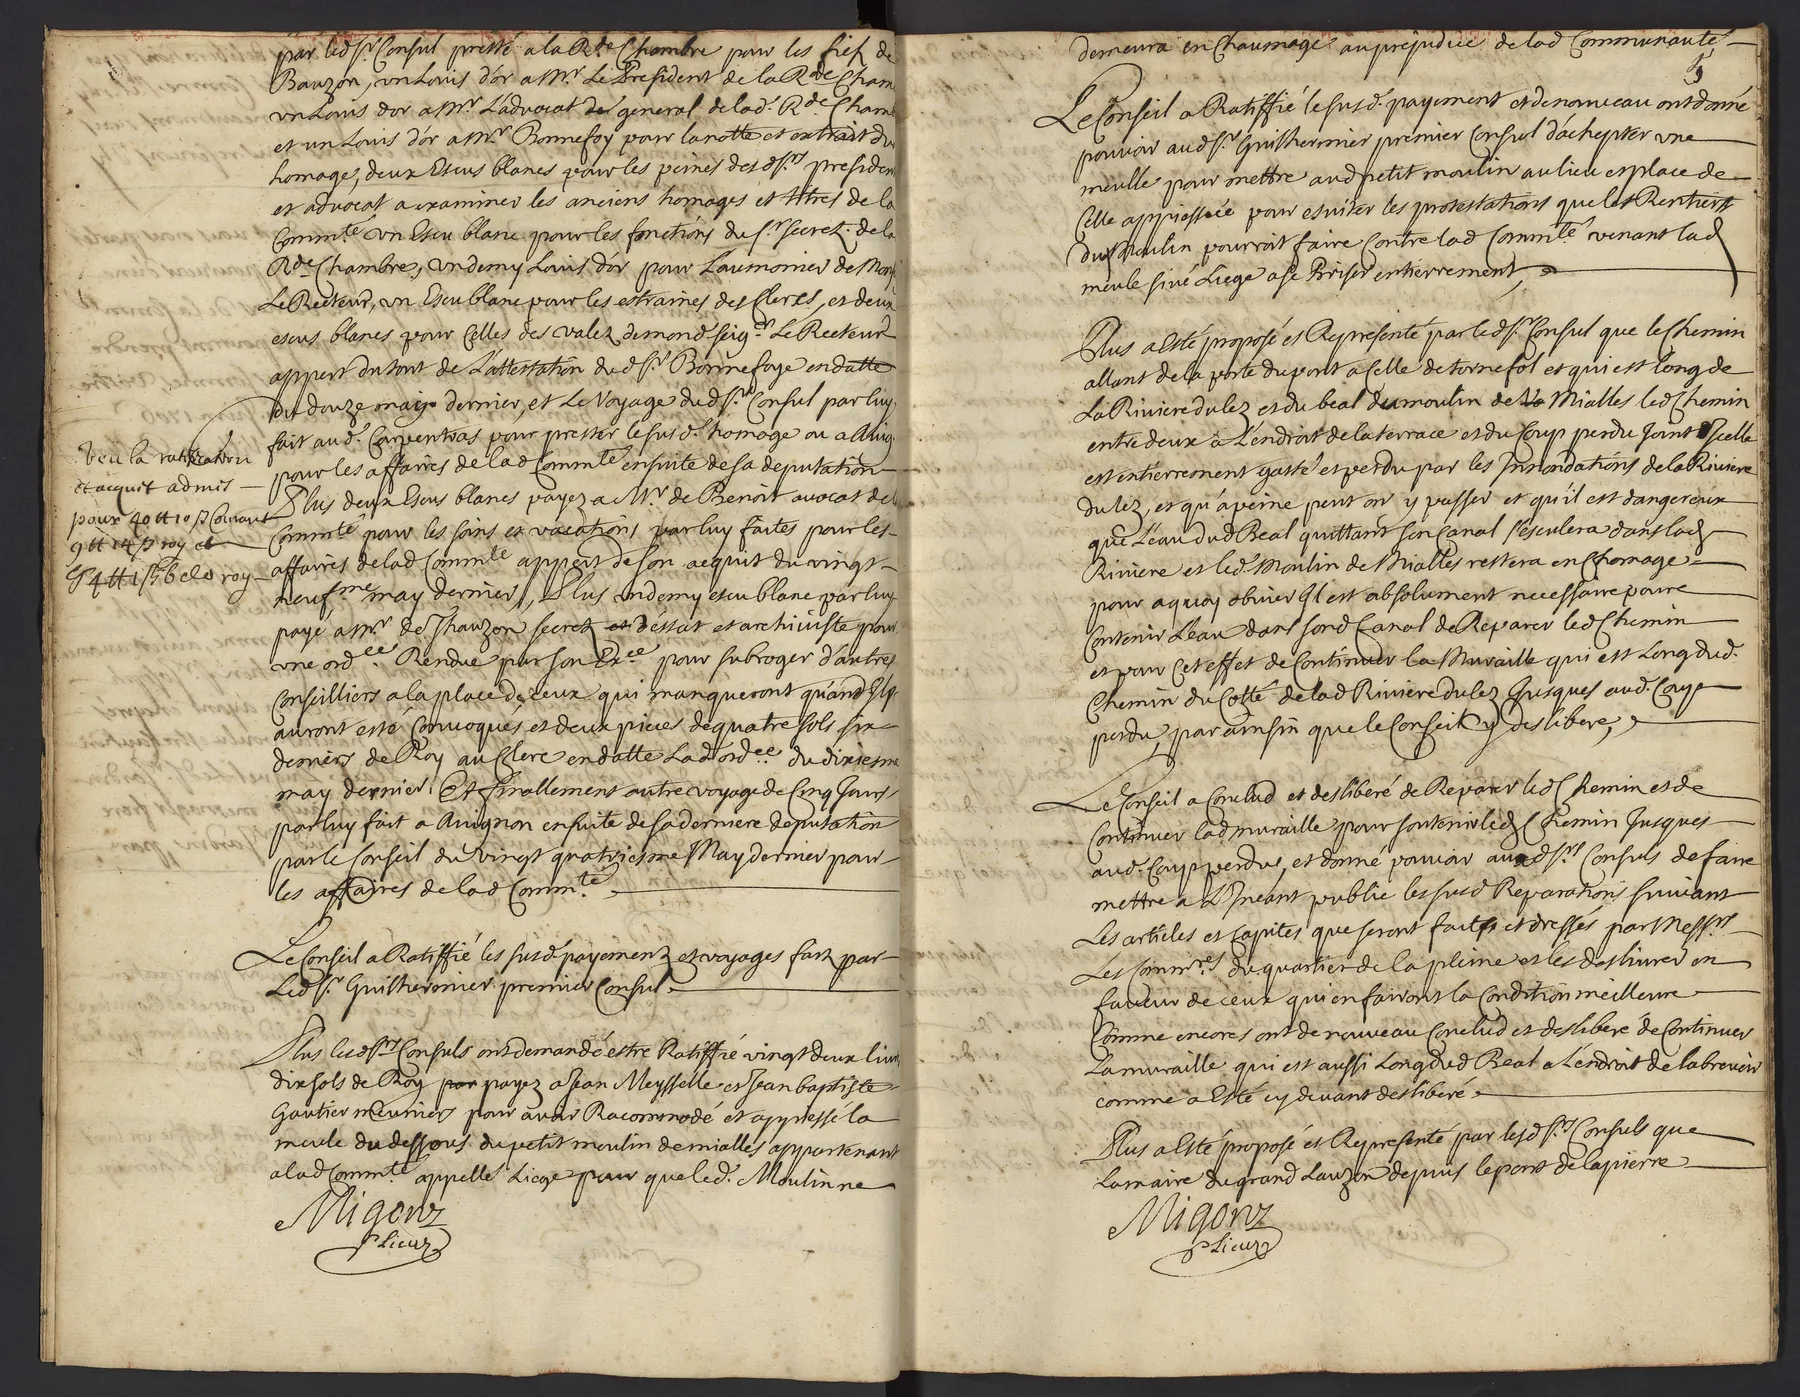 par led sr Consul presté a la Rde Chambre pour les fiefz de
Bauzon, un Louis d'or a Mr Le President de la Rde Cham
un Louis d'or a Mr L'advocat general de lad Rde Chamb
et un Louis d'or a Mr Bonnefoy pour la notte et extrait du
homage, deux Escus blancs pour les peines desd srs presiden
et advocat a examiner les anciens homages et titres de la
Commté un Escu blanc pour les fonctions du sr secret. de la
Rde Chambre, un demy Louis d'or pour L'aumonier de Monsr
Le Recteur, un Escu blanc pour les estraines des Clercs, et deux
escus blancs pour Celles des valez de mond seigr Le Recteur
appert du tout de L'attestation dud sr Bonnefoye en datte
du douze may dernier, et Le Voyage dud sr Consul par luy
fait aud. Carpentras pour prester le susd. homage ou a Avig.
pour les affaires de lad Commté ensuite de sa deputation
Veu la ratification
et acquit admis
pour 40 tt 10 ß Courant
9 tt 14 ß roy et
4 tt 1 ß 6 d roy
Plus deux Escus blancs payez a Mr de Benoit avocat de la
Commté pour les soins et vacations par luy faites pour les
affaires de lad Commté appert de son acquit du vingt
neufme may dernier, Plus un demy escu blanc par luy
payé a Mr de Thauzon secret d'estat et archiviste pour
une ordce Rendue par son Exce pour subroger d'autres
Conseilliers a la place de ceux qui manqueront quand Ilz
auront esté Convoqués et deux pieces de quatre sols six
deniers de Roy au Clerc en datte Lad ordce du dixiesme
may dernier. Et finallement autre voyage de Cinq Jours
par luy fait a Avignon ensuite de sa derniere deputation
par le Conseil du vingt quatriesme May dernier pour
les affaires de lad Commté
Le Conseil a Ratiffié les susd payementz et voyages faitz par
Led sr Guilhermier premier Consul.
Plus lesd srs Consuls ont demandé estre Ratiffié vingt deux livres
dix sols de Roy payez a Jean Meysselle et Jean baptiste
Gautier meuniers pour avoir Racommodé et appiessé la
meule du dessous du petit moulin de mialles appartenant
a lad Commté appellé Liege pour que led. Moulin ne
Migonz
Lieuz
demeura en Chaumage au prejudice de lad Communauté,
5
Le Conseil a Ratiffié le susd. payement et de nouveau ont donné
pouvoir aud sr Guilhermier premier Consul d'achepter une
meulle pour mettre aud petit moulin au lieu et place de
Celle appiessée pour esviter les protestations que les Rentiers
dud moulin pourroit faire Contre lad Commté venant lad
meule sive Liege a se Briser entierrement,
Plus a esté proposé et Representé par led sr Consul que le Chemin
allant de la porte du pont a Celle de tornefol et qui est long de
La Riviere du lez et du beal du moulin de Mialles led Chemin
entre deux a L'endroit de la terrace et du Coup perdu Joint Icelle
est entierrement gatté et perdu par les Innondations de la Riviere
du lez, et qu'a peine peut on y passer et qu'il est dangereux
que L'eau dud Beal quittant son Canal s'esculera dans lad
Riviere et led. Moulin de Mialles restera en Chomage
pour a quoy obvier Il est absolument necessaire pour
Contenir L'eau dans son Canal de Reparer led Chemin
et pour Cet effet de Continuer la Muraille qui est Long dud.
Chemin du Cotté de lad Riviere du lez Jusques aud. Coup
perdu, par ainsin que le Conseil y deslibere,
Le Conseil a Conclud et deslibéré de Reparer led Chemin et de
Continuer lad muraille pour soutenir led Chemin Jusques
aud. Coup perdu, et donné pouvoir aud srs Consuls de faire
mettre a L'Ineant public les susd Reparations suivant
Les articles et Capites que seront faits et dressés par Messrs
Les Commres du quartier de la pleine et les deslivrer en
faveur de ceux qui en fairont la Condition meilleure
Comme encores ont de nouveau Conclud et desliberé de Continuer
La muraille qui est aussi Long dud Beal a L'endroit de labrevoir
comme a esté cy devant desliberé.
Plus a esté proposé et Representé par lesd srs Consuls que
La maire du grand Lauzon depuis le pont de la pierre
Migonz
Lieuz